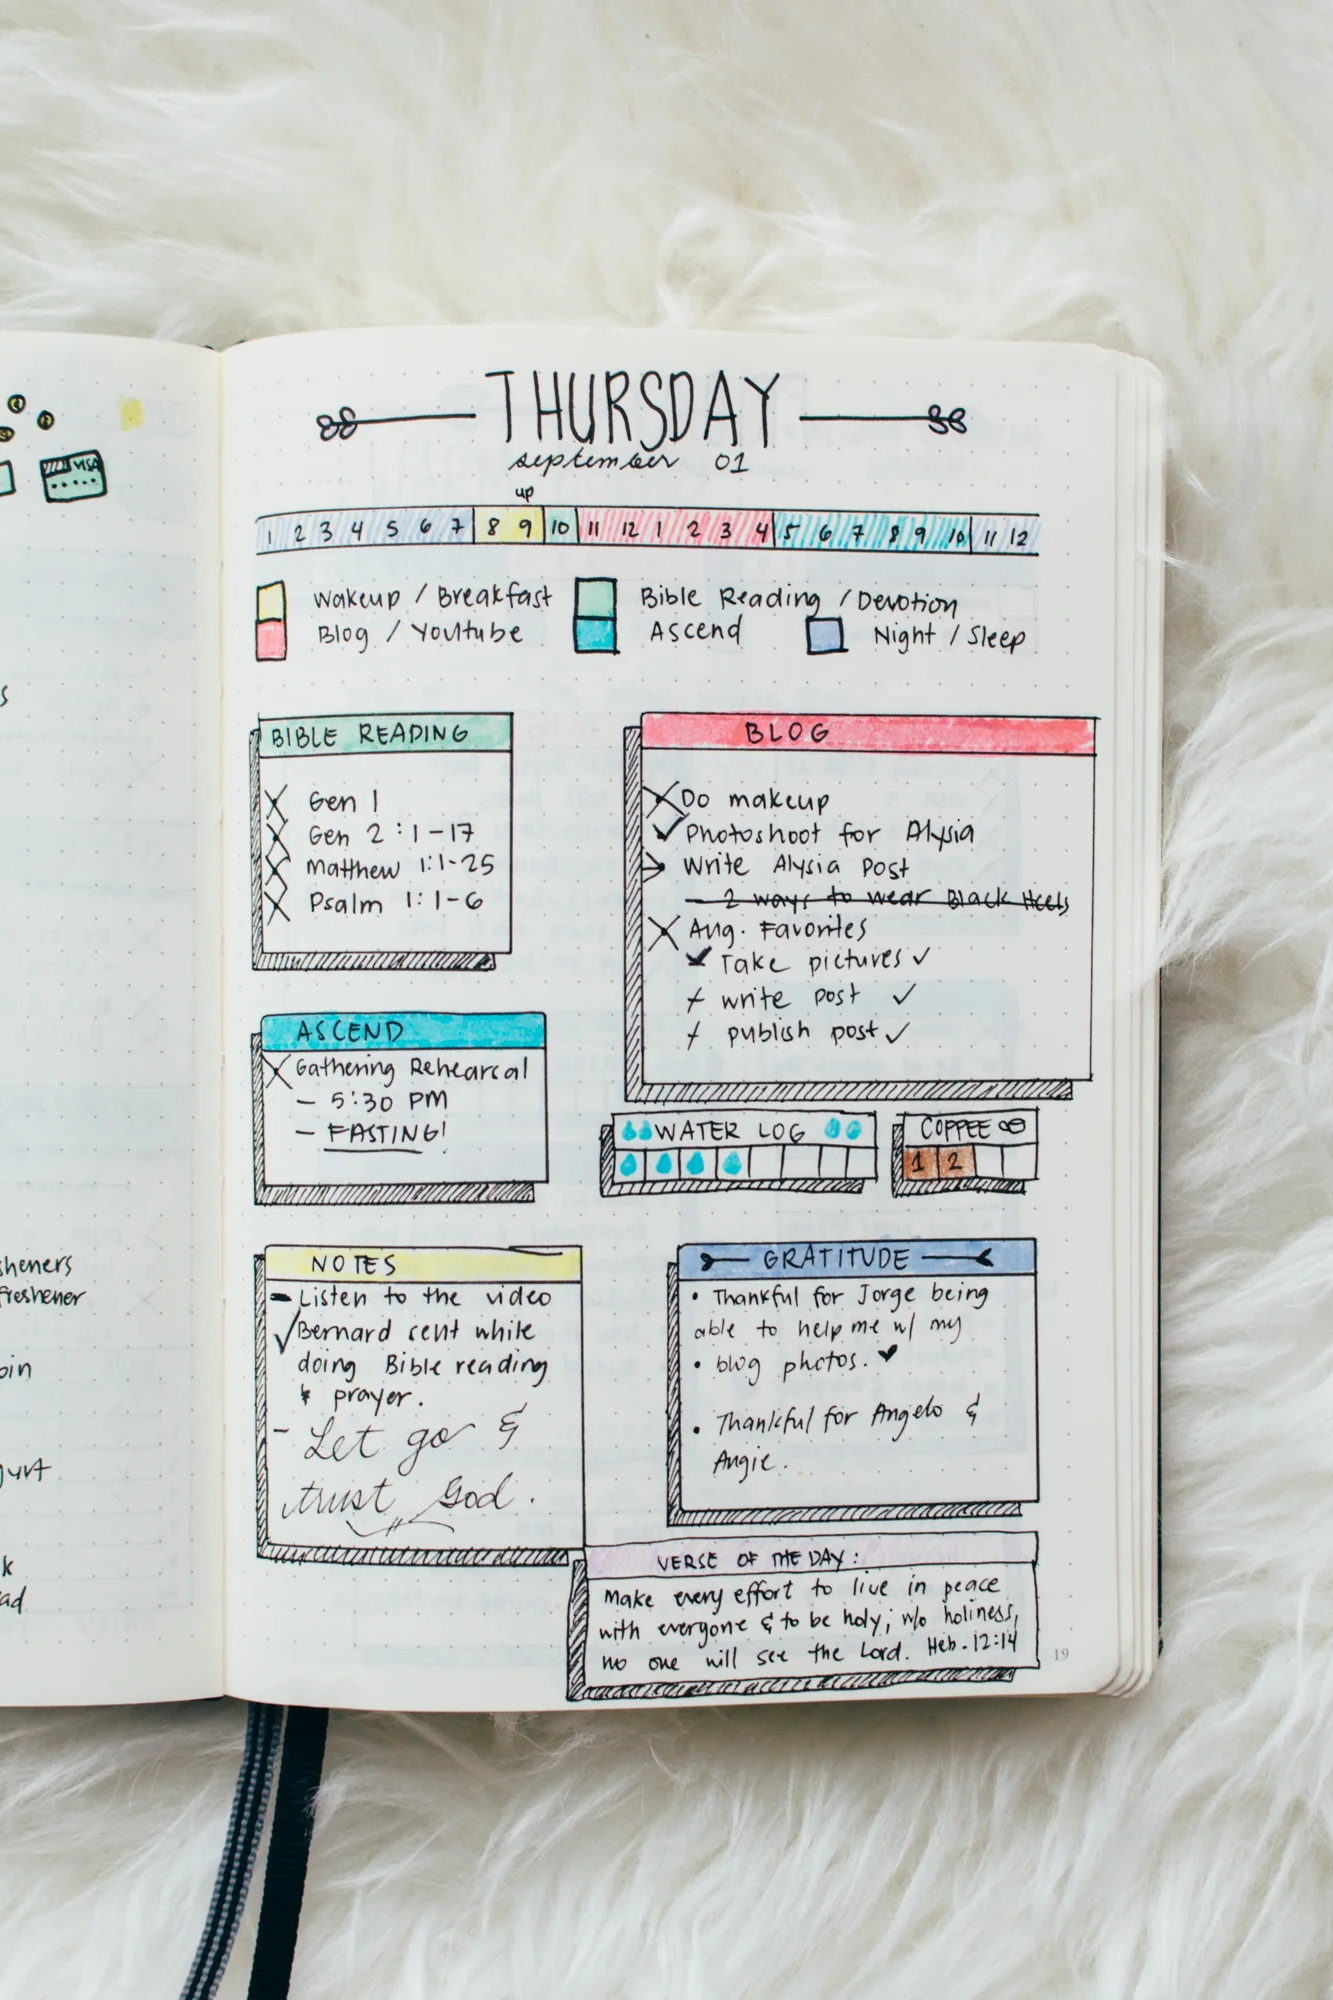 VISA
THURSDAY
september 01
up
1 2 3 4 5 6 7 8 9 10 11 12 1 2 3 4 5 6 7 8 9 10 11 12
Wakeup / Breakfast
Bible Reading / Devotion
Blog / Youtube
Ascend
Night / Sleep
BIBLE READING
Gen 1
Gen 2 : 1-17
Matthew 1:1-25
Psalm 1:1-6
BLOG
Do makeup
Photoshoot for Alysia
Write Alysia Post
- 2 ways to wear Black Heels
Aug. Favorites
Take pictures ✓
write post ✓
publish post ✓
ASCEND
Gathering Rehearsal
- 5:30 PM
- FASTING!
WATER LOG
COFFEE
1 2
NOTES
- Listen to the video
✓ Bernard sent while
doing Bible reading
& prayer.
- Let go &
trust God.
GRATITUDE
• Thankful for Jorge being
able to help me w/ my
• blog photos. ♥
• Thankful for Angelo &
Angie.
VERSE OF THE DAY:
Make every effort to live in peace
with everyone & to be holy; w/o holiness,
no one will see the Lord. Heb. 12:14
19
sheners
freshener